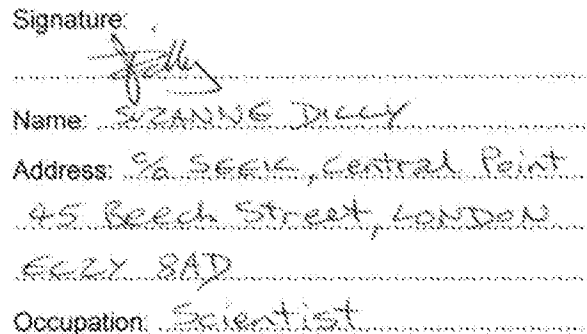 Signature:
Name: SUZANNE DILLY
Address: c/o SEEK, Central Point
45 Beech Street, LONDON
EC2Y 8AD
Occupation: Scientist